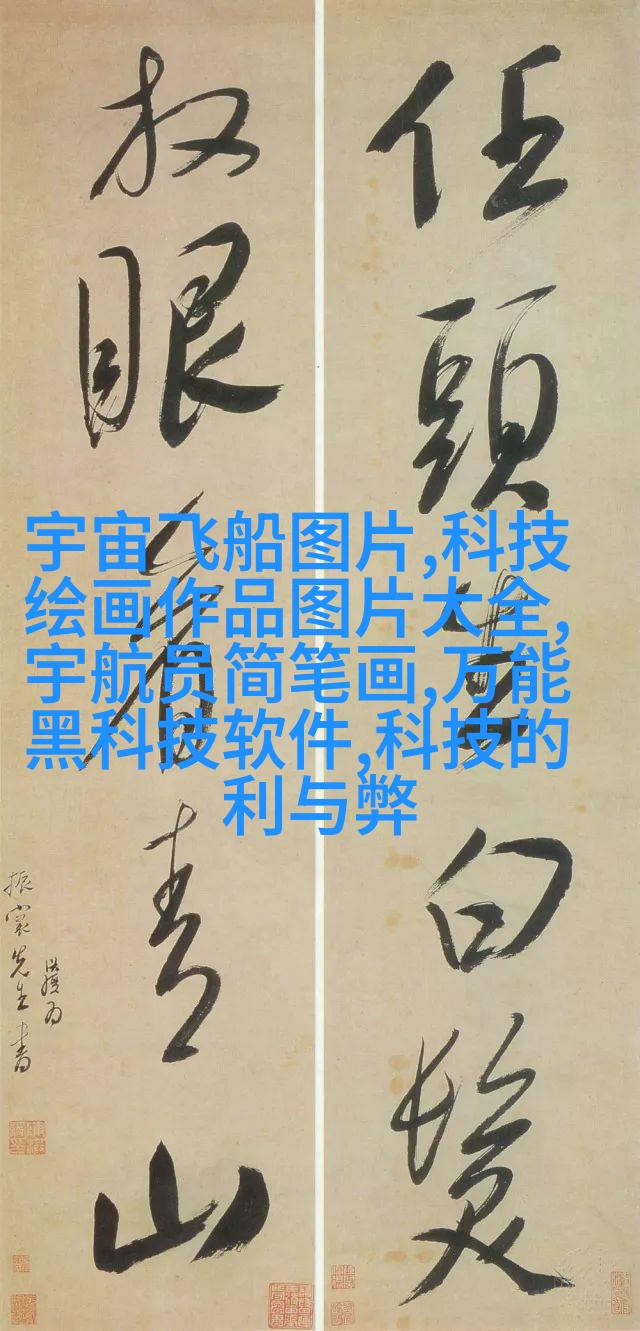 任頭生白髮
放眼看青山
先生
宇宙飞船图片,科技
绘画作品图片大全,
宇航员简笔画,万能
黑科技软件,科技的
利与弊